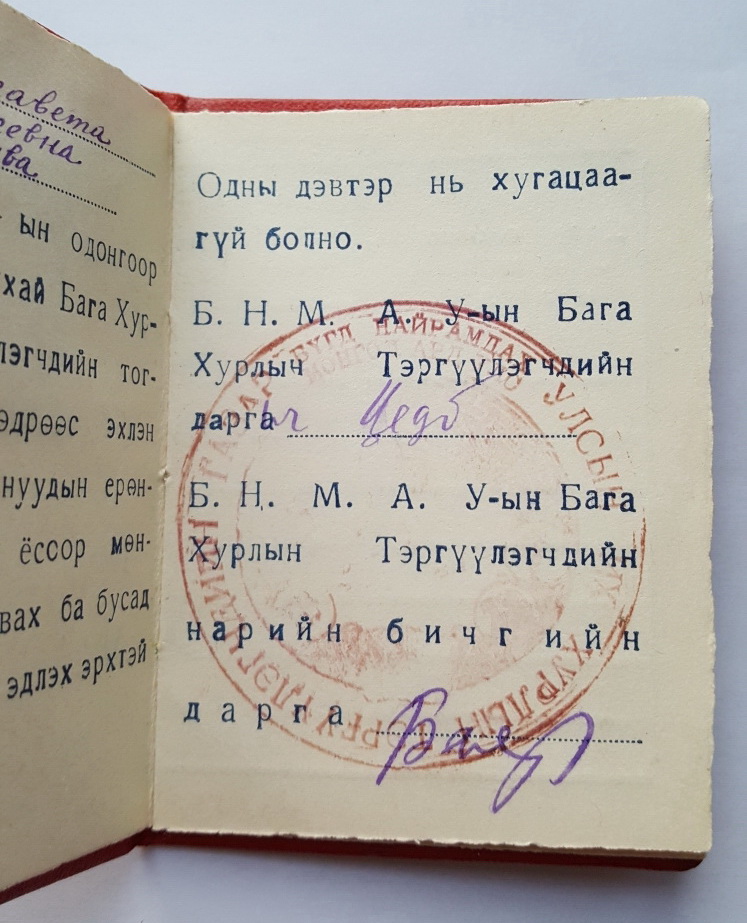 авета
ын одонгоор
хай Бага Хур-
лэгчдийн тог-
эдрөөс эхлэн
нуудын ерөн-
ёссоор мөн-
вах ба бусад
эдлэх эрхтэй
Одны дэвтэр нь хугацаа-
гүй болно.
Б. Н. М. А. У-ын Бага
Хурлыч Тэргүүлэгчдийн
дарга Цедб
Б. Н. М. А. У-ын Бага
Хурлын Тэргүүлэгчдийн
нарийн бичгийн
дарга
БҮГД НАЙРАМДАХ УЛСЫН ХУРЛЫН ТЭРГҮҮЛЭГЧДИЙН ГАЗАР